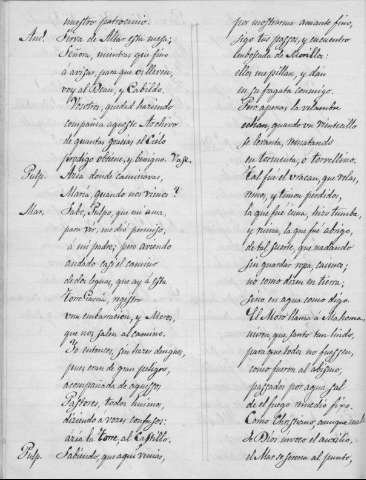 nuestro patrocinio.
Ant. Sirva de Altar esta mesa;
Señora, mientras que fino
a avisar, para que os lleven,
voy al Dean, y Cabildo.
Vosotros, quedad haciendo
compañia a queste Archivo
de quantas gracias el Cielo
prodigo obtiene, y benigno. Vase.
Pulp. Hacia donde caminavas,
Maria, quando nos vimos?
Mar. Sabe, Pulpo, que mi ama,
para ver, me dió permiso,
a mi padre; pero aviendo
andado casi el camino
de dos leguas, que ay á esta
torre García, registro
una embarcacion, y Moros,
que nos salen al camino.
Yo entonces, sin hacer dengues,
pues eran de gran peligro,
acompañada de aquesos
Pastores, todos huimos,
diciendo a voces confusas:
acia la torre, al Castillo.
Pulp. Sabiendo, que aqui venias,
por mostrarme amante fino,
sigo tus passos, y encuentro
emboscada de Morillos:
ellos me pillan, y dan
en su fragata conmigo.
Pero apenas la velambre
echan, quando un vientecillo
se levanta, rematando
en tormenta, o torvellino.
Tal fué el uracan, que velas,
remo, y timon perdidos,
la que fue cuna, hizo tumba,
y ruina, la que fue abrigo,
de tal suerte, que nadando
sin guardar ropa, caimos;
no como dicen en tierra;
sino en agua como digo.
El Moro llama á Mahoma
miren, que santo tan lindo,
para que todos no fuessen,
como fueron al abismo,
passados por agua sal
de el fuego remedio fixo.
Como Christiano, aunque malo
de Dios invoco el auxilio,
el Mar se serena al punto,